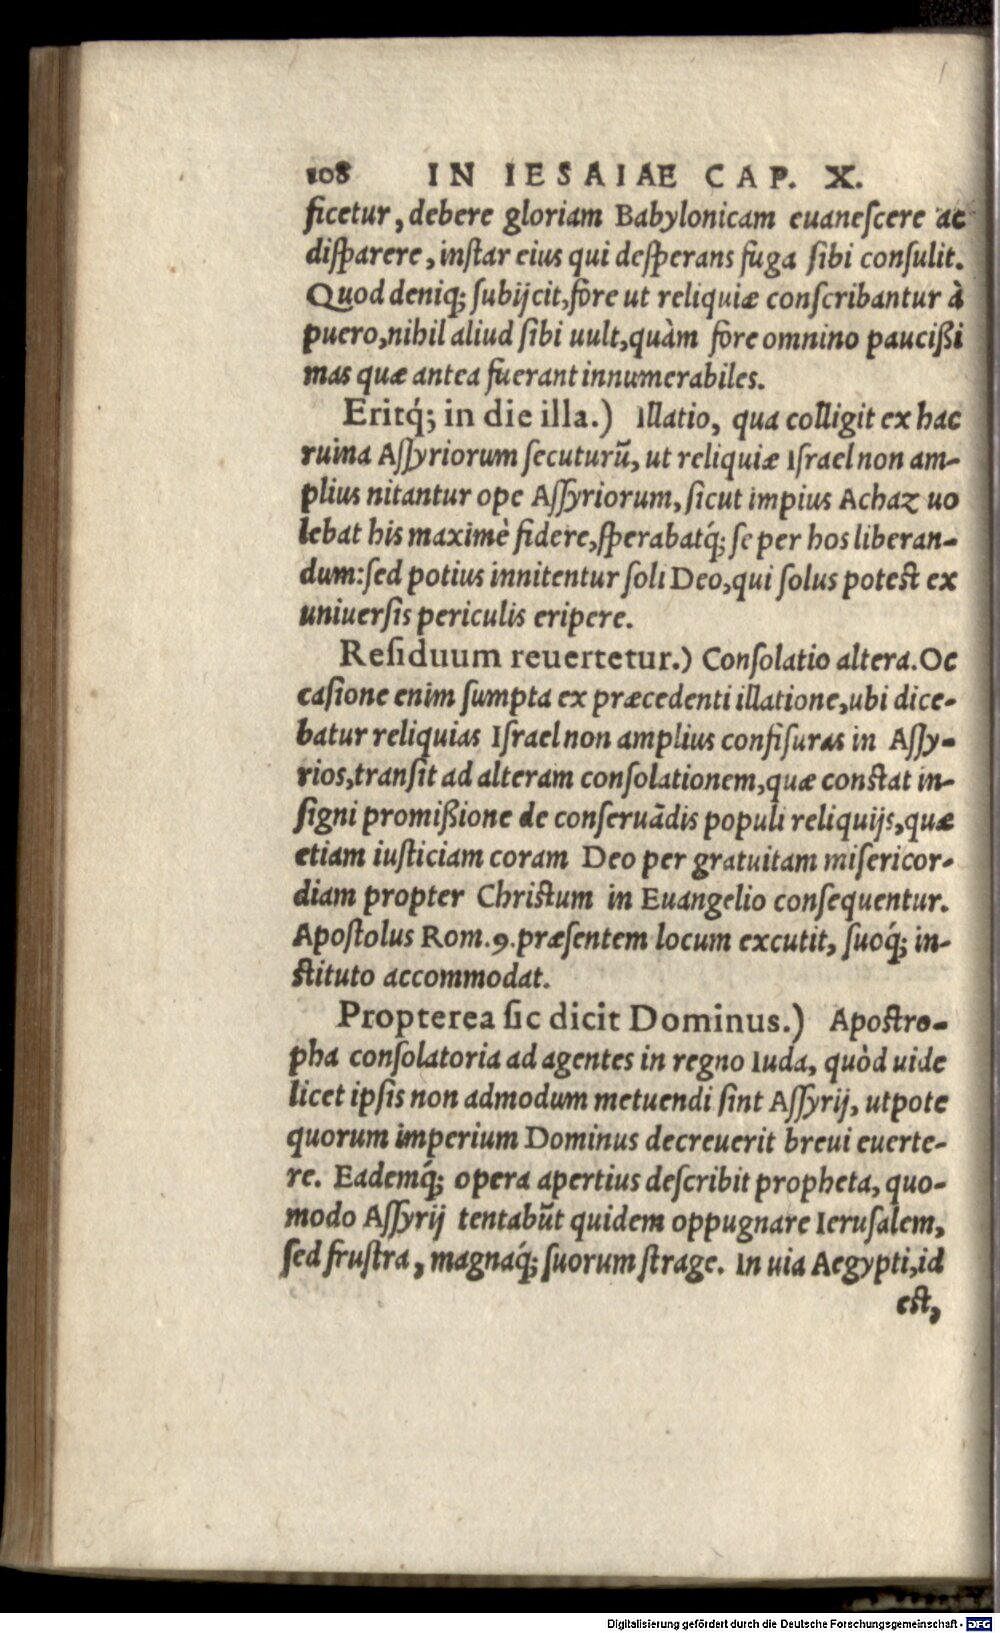 108 IN IESAIAE CAP. X.
ficetur, debere gloriam Babylonicam euaneſcere ac
diſparere, inſtar eius qui deſperans fuga ſibi conſulit.
Quod deniq; ſubijcit, fore ut reliquiæ conſcribantur à
puero, nihil aliud ſibi uult, quàm fore omnino pauciſſi
mas quæ antea fuerant innumerabiles.
Eritq́; in die illa.) Illatio, qua colligit ex hac
ruina Aſſyriorum ſecuturũ, ut reliquiæ Iſrael non am-
plius nitantur ope Aſſyriorum, ſicut impius Achaz uo
lebat his maximè fidere, ſperabatq́; ſe per hos liberan-
dum: ſed potius innitentur ſoli Deo, qui ſolus poteſt ex
uniuerſis periculis eripere.
Reſiduum reuertetur.) Conſolatio altera. Oc
caſione enim ſumpta ex præcedenti illatione, ubi dice-
batur reliquias Iſrael non amplius confiſuras in Aſſy-
rios, tranſit ad alteram conſolationem, quæ conſtat in-
ſigni promiſſione de conſeruãdis populi reliquijs, quæ
etiam iuſticiam coram Deo per gratuitam miſericor-
diam propter Chriſtum in Euangelio conſequentur.
Apoſtolus Rom. 9. præſentem locum excutit, ſuoq́; in-
ſtituto accommodat.
Propterea ſic dicit Dominus.) Apoſtro-
pha conſolatoria ad agentes in regno Iuda, quòd uide
licet ipſis non admodum metuendi ſint Aſſyrij, utpote
quorum imperium Dominus decreuerit breui euerte-
re. Eademq́; opera apertius deſcribit propheta, quo-
modo Aſſyrij tentabũt quidem oppugnare Ieruſalem,
ſed fruſtra, magnaq́; ſuorum ſtrage. In uia Aegypti, id
eſt,
Digitalisierung gefördert durch die Deutsche Forschungsgemeinschaft - DFG